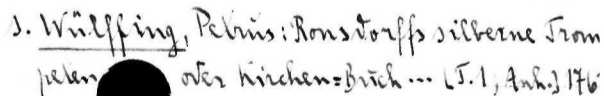 s. Wülffing, Petrus: Ronsdorffs silberne Trom
peten oder Kirchen=Buch ... [T.1, Anh.] 176